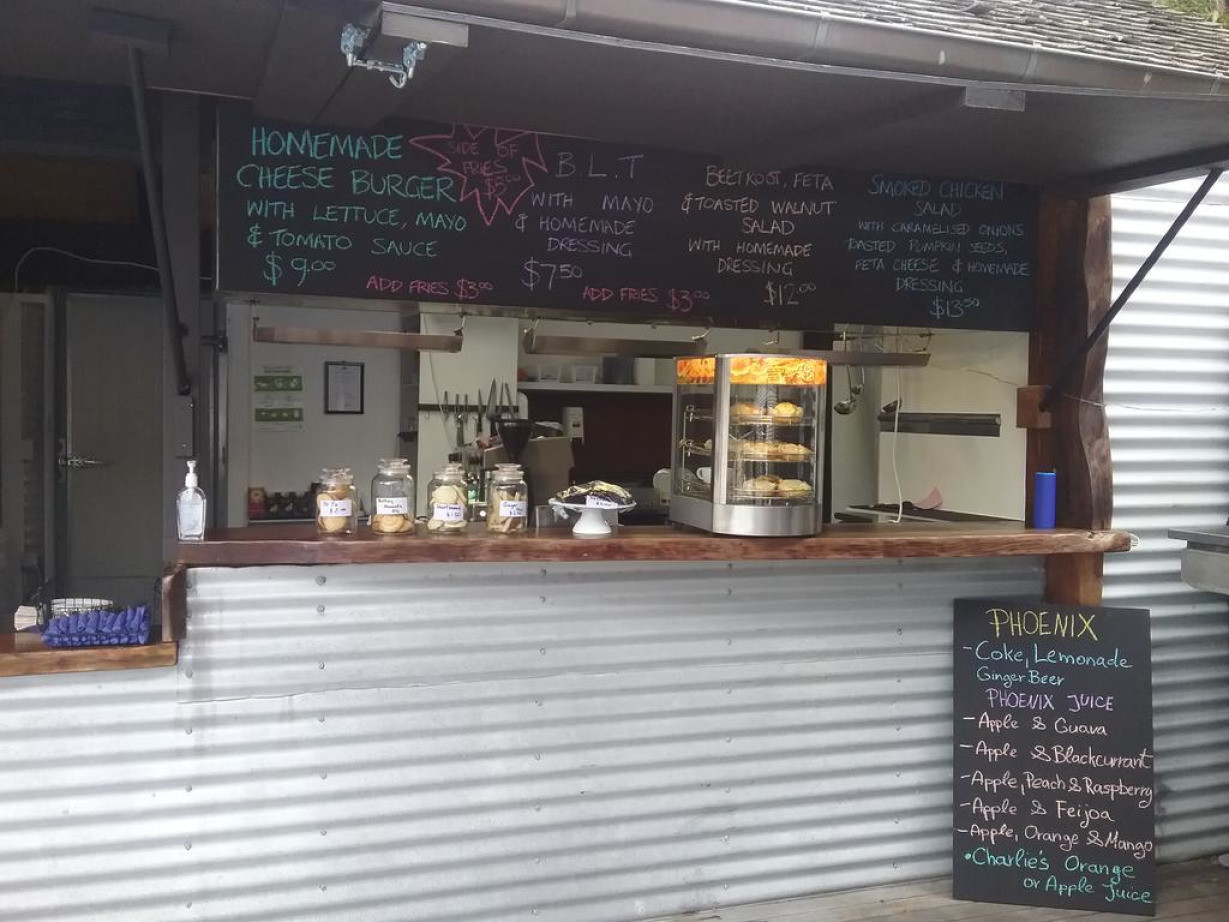 HOMEMADE
CHEESE BURGER
WITH LETTUCE, MAYO
& TOMATO SAUCE
$9.00
ADD FRIES $3.00
SIDE OF
FRIES
$5.00
B.L.T
WITH MAYO
& HOMEMADE
DRESSING
$7.50
ADD FRIES $3.00
BEETROOT, FETA
& TOASTED WALNUT
SALAD
WITH HOMEMADE
DRESSING
$12.00
SMOKED CHICKEN
SALAD
WITH CARAMELISED ONIONS
TOASTED PUMPKIN SEEDS,
FETA CHEESE & HOMEMADE
DRESSING
$13.50
PHOENIX
- Coke, Lemonade
Ginger Beer
PHOENIX JUICE
- Apple & Guava
- Apple & Blackcurrant
- Apple, Peach & Raspberry
- Apple & Feijoa
- Apple, Orange & Mango
• Charlie's Orange
or Apple Juice